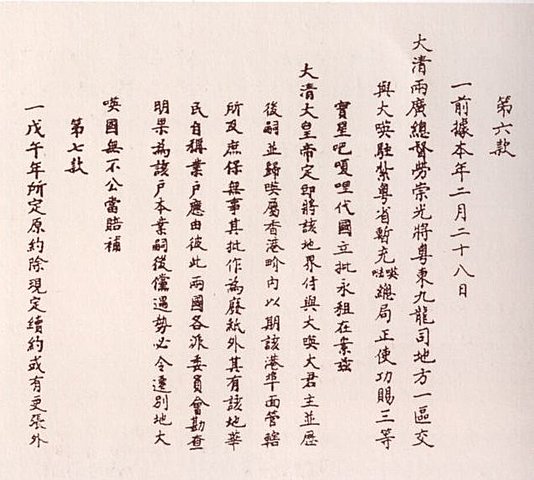 第六款
一前據本年二月二十八日
大清兩廣總督勞崇光將粵東九龍司地方一區交
與大㖤駐紮粵省暫充㖤咭總局正使功賜三等
寶星吧嗄哩代國立批永租在案茲
大清大皇帝定即將該地界付與大㖤大君主並歷
後嗣並歸㖤屬香港界內以期該港埠面管轄
所及庶保無事其批作為廢紙外其有該地華
民自稱業戶應由彼此兩國各派委員會勘查
明果為該戶本業嗣後倘遇勢必令遷別地大
㖤國無不公當賠補
第七款
一戊午年所定原約除現定續約或有更張外